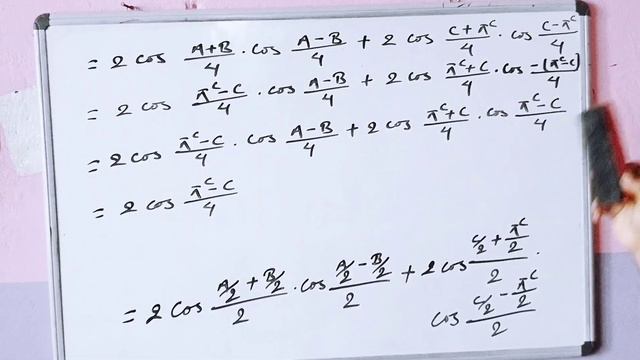 = 2 cos (A+B)/4 · cos (A−B)/4 + 2 cos (C+π^c)/4 · cos (C−π^c)/4
= 2 cos (π^c−C)/4 · cos (A−B)/4 + 2 cos (π^c+C)/4 · cos −(π^c−C)/4
= 2 cos (π^c−C)/4 · cos (A−B)/4 + 2 cos (π^c+C)/4 · cos (π^c−C)/4
= 2 cos (π^c−C)/4
= 2 cos (A/2 + B/2)/2 · cos (A/2 − B/2)/2 + 2 cos (C/2 + π^c/2)/2 ·
cos (C/2 − π^c/2)/2